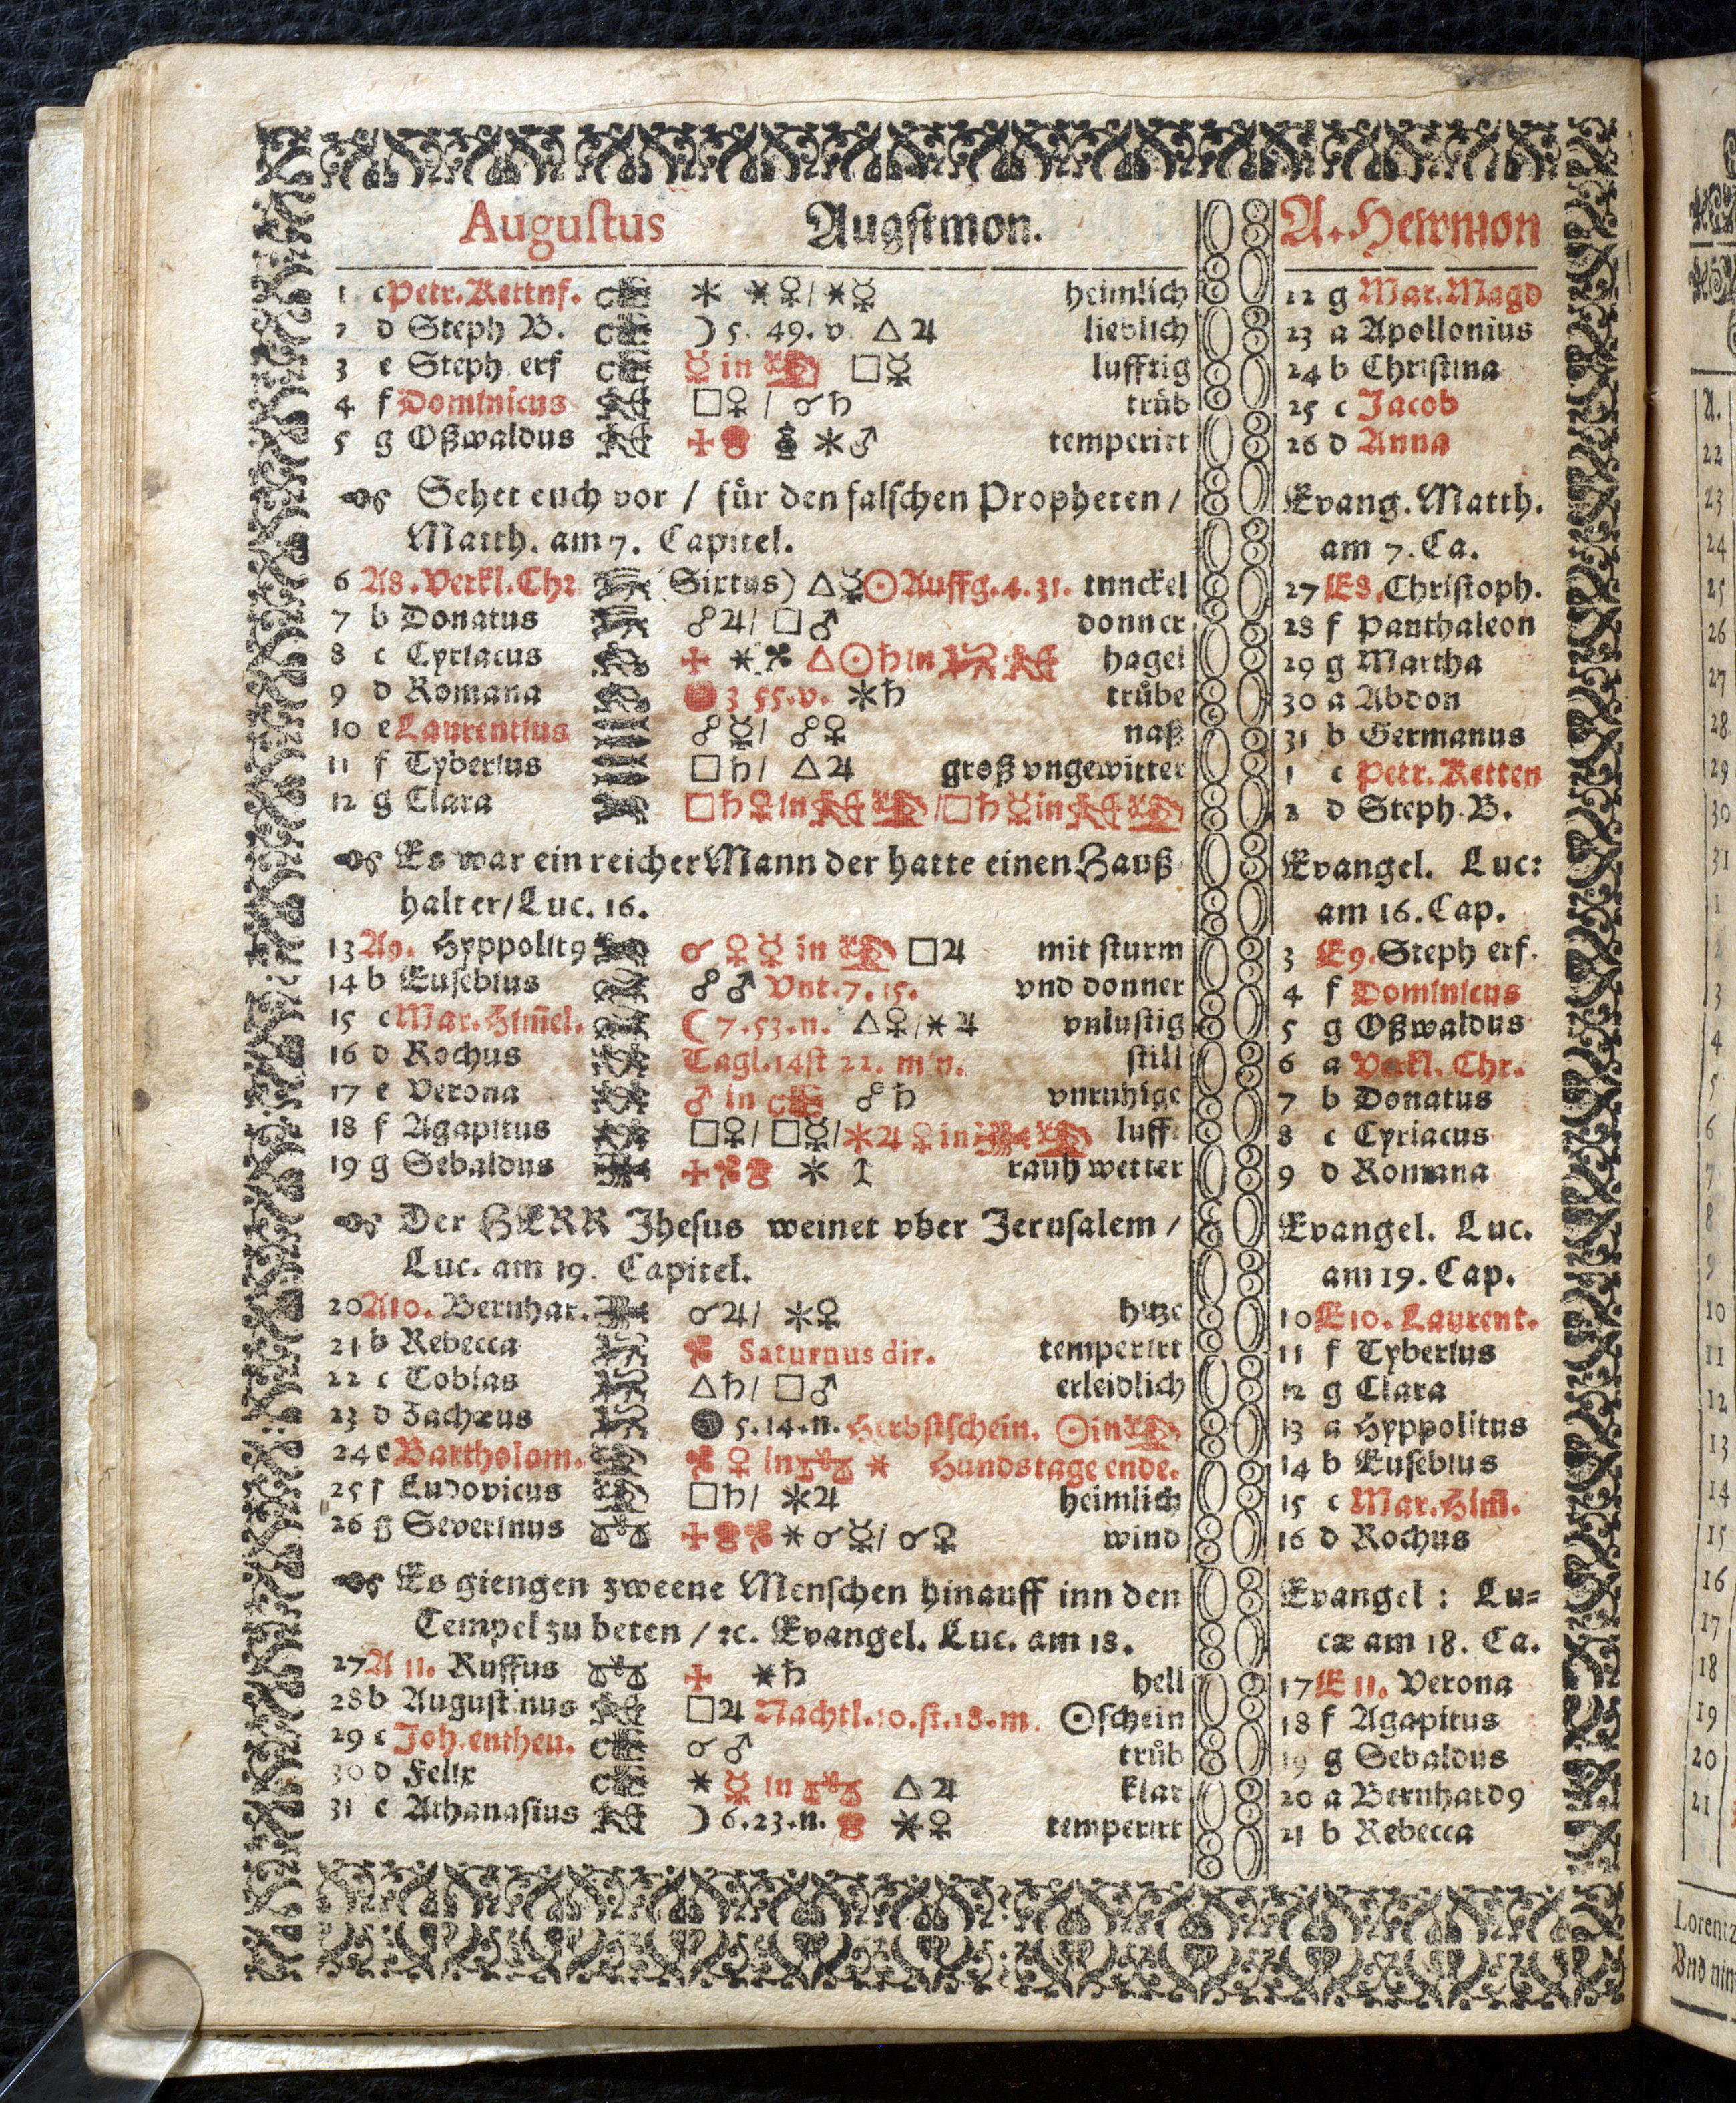 Augustus Augstmon. A. Hewmon
1 c Petr. Kettnf. ⚹ ⚹♀/⚹☿ heimlich 22 g Mar. Magd
2 d Steph B. ☽ 5. 49. v. △♃ lieblich 23 a Apollonius
3 e Steph erf ☿ in ♍ □☿ lufftig 24 b Christina
4 f Dominicus □♀ / ☌♄ trůb 25 c Jacob
5 g Oßwaldus ⚹♂ temperirt 26 d Anna
Sehet euch vor / für den falschen Propheten / Evang. Matth.
Matth. am 7. Capitel. am 7. Ca.
6 A8. Verkl. Chr Sixtus) △☿☉Auffg. 4. 31. tunckel 27 E8. Christoph.
7 b Donatus ☍♃/ □♂ donner 28 f Panthaleon
8 c Cyriacus ⚹ △☉♄ in hagel 29 g Martha
9 d Romana 3 55. v. ⚹♄ trůbe 30 a Abdon
10 e Laurentius ☍☿/ ☍♀ naß 31 b Germanus
11 f Tyberius □♄/ △♃ groß vngewitter 1 c Petr. Ketten
12 g Clara □♄♀in /□♄☿in 2 d Steph. B.
Es war ein reicher Mann der hatte einen Hauß Evangel. Luc:
halter/Luc. 16. am 16. Cap.
13 A9. Hyppolit9 ☌ ♀ ☿ in ♍ □♃ mit sturm 3 E9. Steph erf.
14 b Eusebius ☍ ♂ Vnt. 7. 15. vnd donner 4 f Dominicus
15 c Mar. Him̃el. ☾ 7. 53. n. △♀/⚹♃ vnlustig 5 g Oßwaldus
16 d Rochus Tagl. 14st 22. m n. still 6 a Verkl. Chr.
17 e Verona ♂ in ☍♄ vnruhige 7 b Donatus
18 f Agapitus □♀/□☿/⚹♃♀in luff 8 c Cyriacus
19 g Sebaldus ⚹ rauh wetter 9 d Romana
Der HERR Jhesus weinet vber Jerusalem / Evangel. Luc.
Luc. am 19. Capitel. am 19. Cap.
20 A10. Bernhar. ☌♃/ ⚹♀ hitze 10 E10. Laurent.
21 b Rebecca Saturnus dir. temperirt 11 f Tyberius
22 c Tobias △♄/ □♂ erleidlich 12 g Clara
23 d Zachæus 5. 14. n. Herbstschein. ☉in♍ 13 a Hyppolitus
24 e Bartholom. ♀ in♎ ⚹ Hundstage ende. 14 b Eusebius
25 f Ludovicus □♄/ ⚹♃ heimlich 15 c Mar. Him̃.
26 g Severinus ⚹☌☿/ ☌♀ wind 16 d Rochus
Es giengen zweene Menschen hinauff inn den Evangel : Lu=
Tempel zu beten / ꝛc. Evangel. Luc. am 18. cæ am 18. Ca.
27 A 11. Ruffus ⚹♄ hell 17 E 11. Verona
28 b Augustinus □♃ Nachtl. 10. st. 18. m. ☉schein 18 f Agapitus
29 c Joh. entheu. ☌♂ trůb 19 g Sebaldus
30 d Felix ⚹ ☿ in ♎ △♃ klar 20 a Bernhard9
31 e Athanasius ☽ 6. 23. n. ⚹♀ temperirt 21 b Rebecca
A.
22
23
24
25
26
27
28
29
30
31
1
2
3
4
5
6
7
8
9
10
11
12
13
14
15
16
17
18
19
20
21
Lorentz
Vnd nim